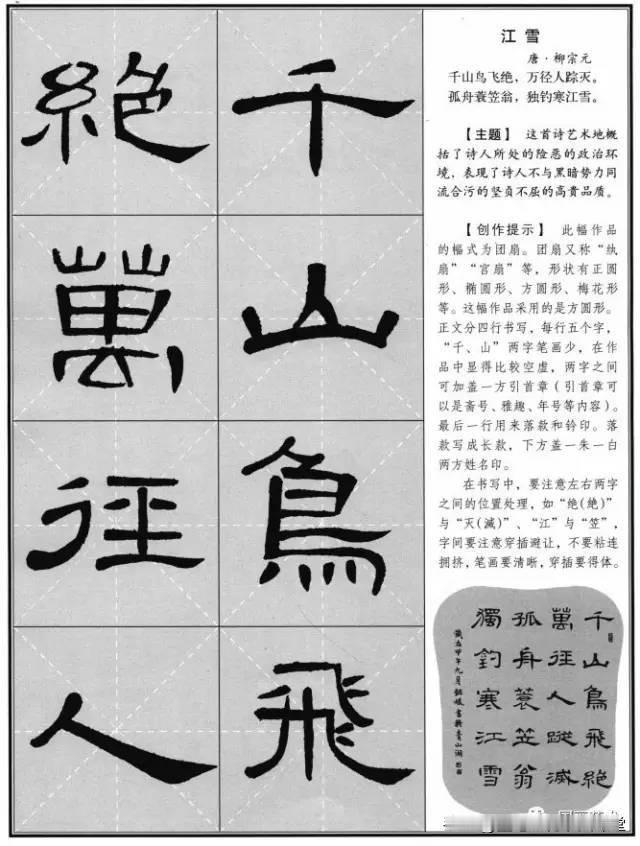 千山鳥飛
絶萬徑人
江雪
唐·柳宗元
千山鸟飞绝，万径人踪灭。
孤舟蓑笠翁，独钓寒江雪。
【主题】 这首诗艺术地概
括了诗人所处的险恶的政治环
境，表现了诗人不与黑暗势力同
流合污的坚贞不屈的高贵品质。
【创作提示】 此幅作品
的幅式为团扇。团扇又称“纨
扇”“宫扇”等，形状有正圆
形、椭圆形、方圆形、梅花形
等。这幅作品采用的是方圆形。
正文分四行书写，每行五个字，
“千、山”两字笔画少，在作
品中显得比较空虚，两字之间
可加盖一方引首章（引首章可
以是斋号、雅趣、年号等内容）。
最后一行用来落款和钤印。落
款写成长款，下方盖一朱一白
两方姓名印。
在书写中，要注意左右两字
之间的位置处理，如“绝(絶)”
与“灭(滅)”、“江”与“笠”，
字间要注意穿插避让，不要粘连
拥挤，笔画要清晰，穿插要得体。
千山鳥飛絶
萬徑人蹤滅
孤舟蓑笠翁
獨釣寒江雪
歲在甲午九月 書於青山湖